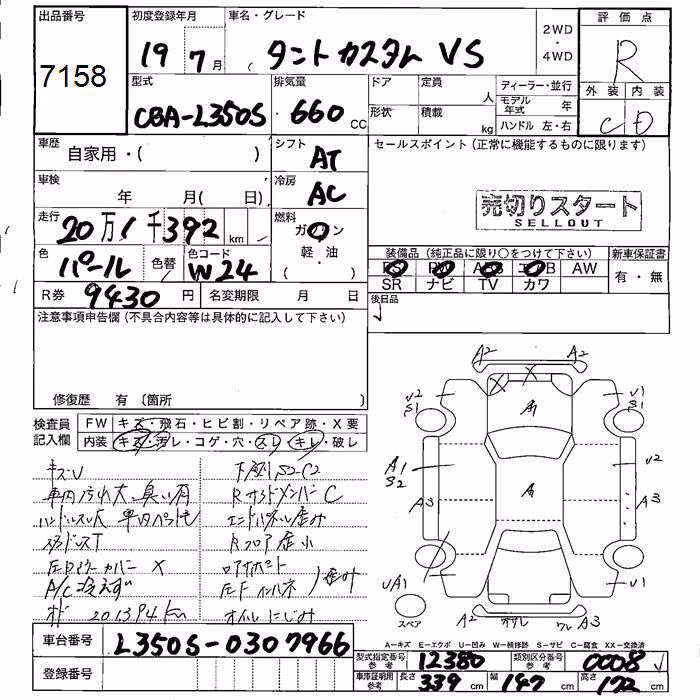 出品番号
7158
初度登録年月
19 7月
車名・グレード
( タントカスタム VS
2WD
・
4WD
評価点
R
外装 内装
C D
型式
CBA-L350S
排気量
660 cc
ドア
形状
定員 人
積載 kg
ディーラー・並行
モデル年式 年
ハンドル 左・右
車歴
自家用・( )
シフト
AT
セールスポイント (正常に機能するものに限ります)
車検
年 月( 日)
冷房
AC
売切りスタート
SELLOUT
走行
20万1千392 km
燃料
ガソリン
・
軽油
( )
色
パール
色替
色コード
W24
装備品 (純正品に限り○をつけて下さい)
PS PW ABS エアB AW
SR ナビ TV カワ
新車保証書
有・無
R券 9430円
名変期限 月 日
後日品
注意事項申告欄 (不具合内容等は具体的に記入して下さい)
修復歴 有 〔箇所 〕
検査員記入欄
FW キズ・飛石・ヒビ割・リペア跡・X要
内装 キズ・汚レ・コゲ・穴・スレ・キレ・破レ
キズU
車内汚れ大、臭い有
ハンドルスレ大 車内ペット毛
スタッドレスT
左Dミラーカバー X
A/C冷えず
オド 201394km
下廻りS2-C2
RサイドメンバーC
エンドパネル歪み
Rフロア歪小
コアサポート
左Fインパネ
歪み
オイルにじみ
A2 A2
U2
S1
A1
S2
A3
UA1
A2
A1
A
U1
S1
U2
A3
U1
スペア
オサレ
ワレ A3
A-キズ E-エクボ U-凹み W-補修跡 S-サビ C-腐食 XX-交換済
車台番号
L350S-0307966
登録番号
型式指定番号
参考
12380
類別区分番号
参考
0008
車庫証明用
参考
長さ 339 cm 幅 147 cm 高さ 172 cm